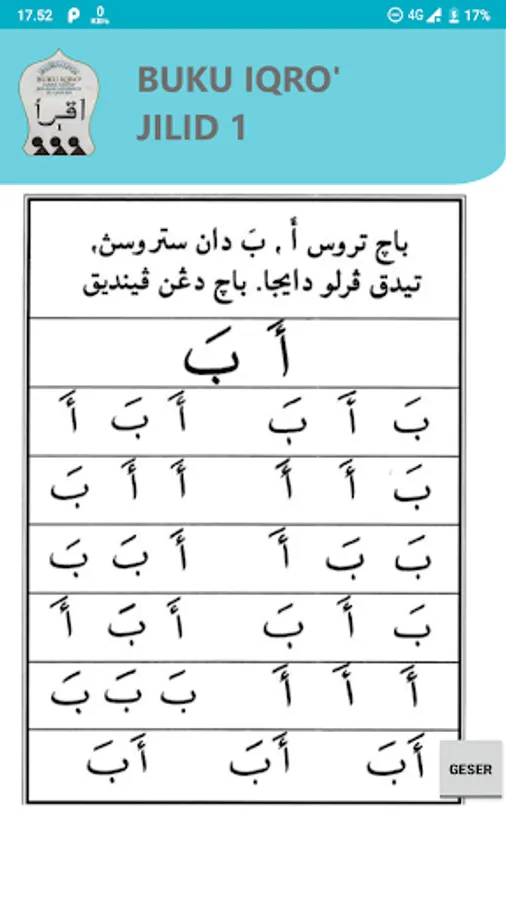 17.52 0 KB/s 4G 17%
BUKU IQRO'
اقرأ
BUKU IQRO'
JILID 1
باچ تروس أَ , بَ دان ستروسڽ,
تيدق ڤرلو دايجا. باچ دڠن ڤينديق
أَ بَ
بَ أَ بَ أَ بَ أَ
بَ أَ أَ أَ أَ بَ
بَ بَ أَ أَ بَ بَ
بَ أَ بَ أَ بَ أَ
أَ أَ أَ بَ بَ بَ
أَبَ أَبَ أَبَ
GESER